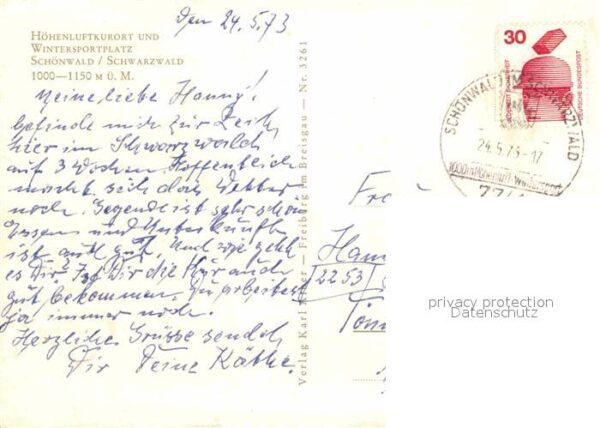 den 24.5.73
HÖHENLUFTKURORT UND
WINTERSPORTPLATZ
SCHÖNWALD / SCHWARZWALD
1000—1150 M Ü. M.
Meine liebe Hanny!
befinde mich zur Zeit
hier im Schwarzwald
auf 3 Wochen. Hoffentlich
macht sich das Wetter
noch. Gegend ist sehr schön
Essen und Unterkunft
ist auch gut. Und wie geht
es Dir? Ist Dir die Kur auch
gut bekommen. Du arbeitest
ja immer noch.
Herzliche Grüsse sendet
Dir Deine Käthe.
Verlag Karl — Freiburg im Breisgau — Nr. 3261
30
JEDERZEIT SICHERHEIT
DEUTSCHE BUNDESPOST
SCHÖNWALD IM SCHWARZWALD
24.5.73-17
Fr
Han
2253
Tön
privacy protection
Datenschutz